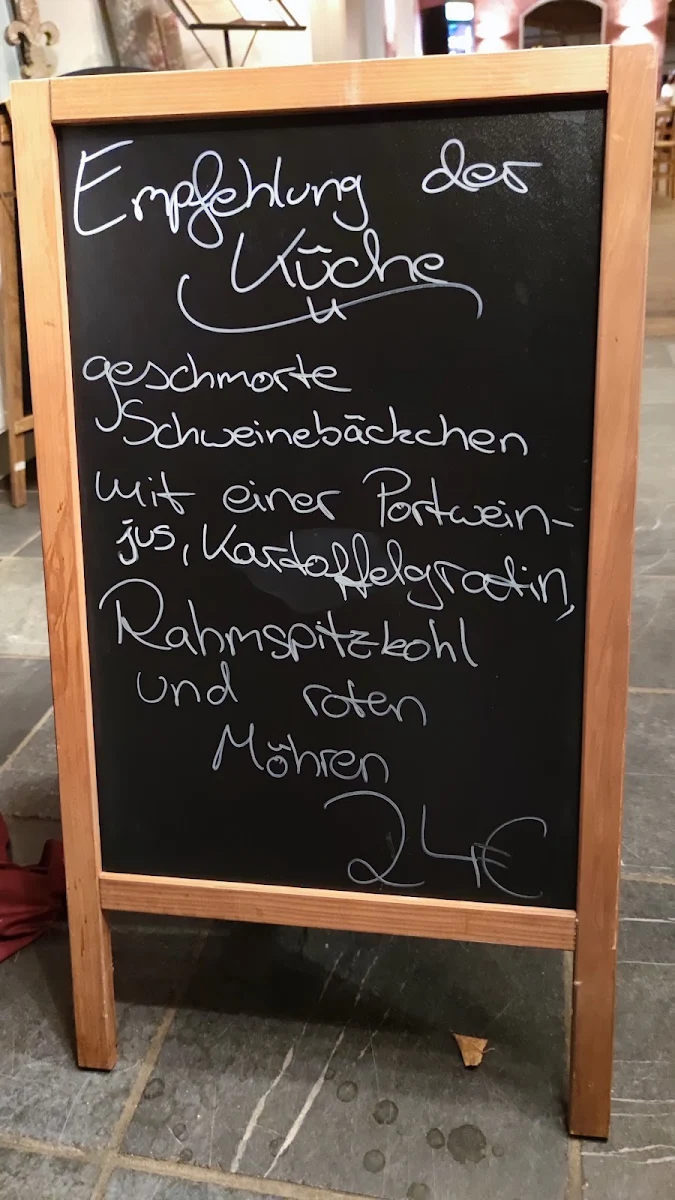 Empfehlung der
Küche
geschmorte
Schweinebäckchen
mit einer Portwein-
jus, Kartoffelgratin,
Rahmspitzkohl
und roten
Möhren
24€